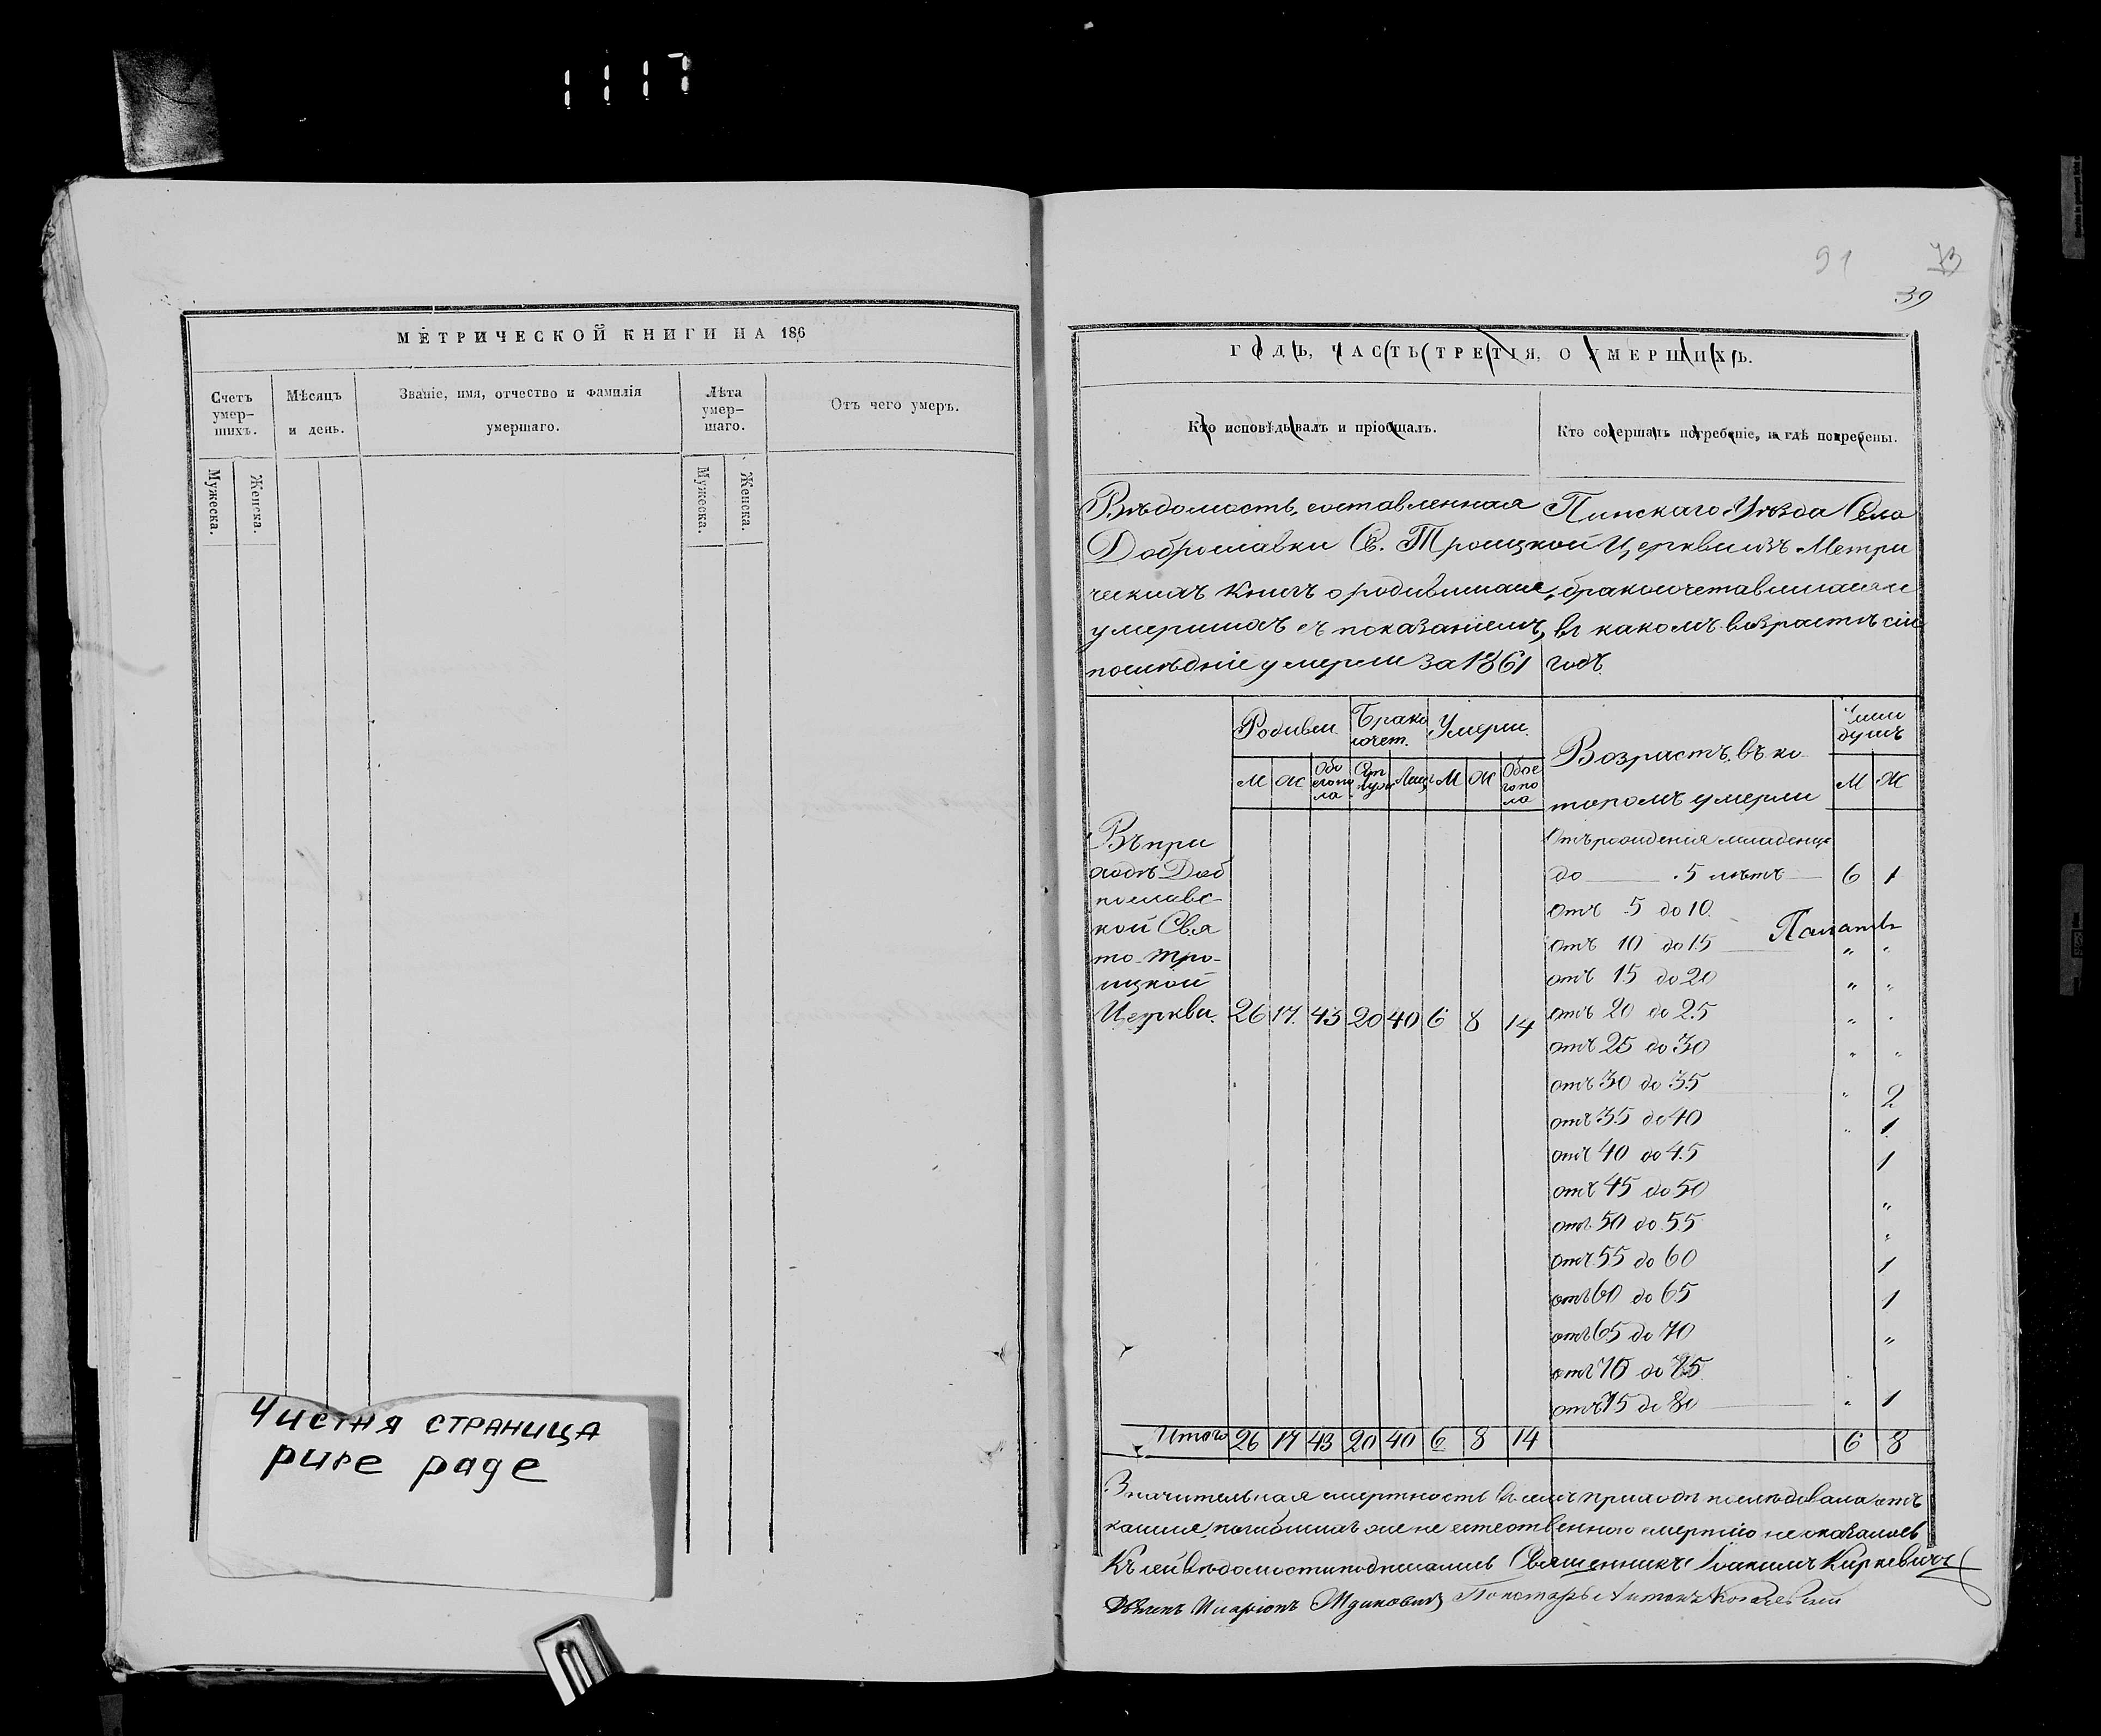 1117
МЕТРИЧЕСКОЙ КНИГИ НА 186
Счетъ умер-шихъ.
Мужеска.
Женска.
Мѣсяцъ и день.
Званіе, имя, отчество и фамилія умершаго.
Лѣта умер-шаго.
Мужеска.
Женска.
Отъ чего умеръ.
Чистая страница
pure page
91
39
ГОДЪ, ЧАСТЬ ТРЕТІЯ, О УМЕРШИХЪ.
Кто исповѣдывалъ и пріобщалъ.
Кто совершалъ погребеніе, и гдѣ погребены.
Вѣдомость, составленная Пинскаго Уѣзда Села
Доброславки Св. Троицкой Церкви изъ Метри
ческихъ книгъ о родившихся, бракосочетавшихся и
умершихъ съ показаніемъ, въ какомъ возрастѣ сіи
послѣдніе умерли за 1861 годъ
Родивш. Брако сочет. Умерли. Возрастъ, въ ко тором умерли Число душъ
М Ж Обо его по ла М Ж Обое го по ла М Ж
Въ при
ходѣ Доб
рославс-
кой Свя
то-Тро-
ицкой
Церкви. 26 17. 43 20 40 6 8 14
Отъ рожденія младенцевъ
до 5 лѣтъ 6 1
Отъ 5 до 10.
отъ 10 до 15 " "
отъ 15 до 20 " "
отъ 20 до 25 " "
отъ 25 до 30 " "
отъ 30 до 35 " 2
отъ 35 до 40 " 1
отъ 40 до 45 1
отъ 45 до 50 "
отъ 50 до 55 "
отъ 55 до 60 1
отъ 60 до 65 1
отъ 65 до 70 "
отъ 70 до 75
отъ 75 до 80 " 1
Итого 26 17 43 20 40 6 8 14 6 8
Значительная смертность въ семъ приходѣ послѣдовала отъ
кашля, погибшихъ же не естественною смертію не оказалось
Къ сей вѣдомости подписались Священникъ Іоакимъ Киркевичъ
Иларіонъ Ждановичъ Пономарь Антонъ